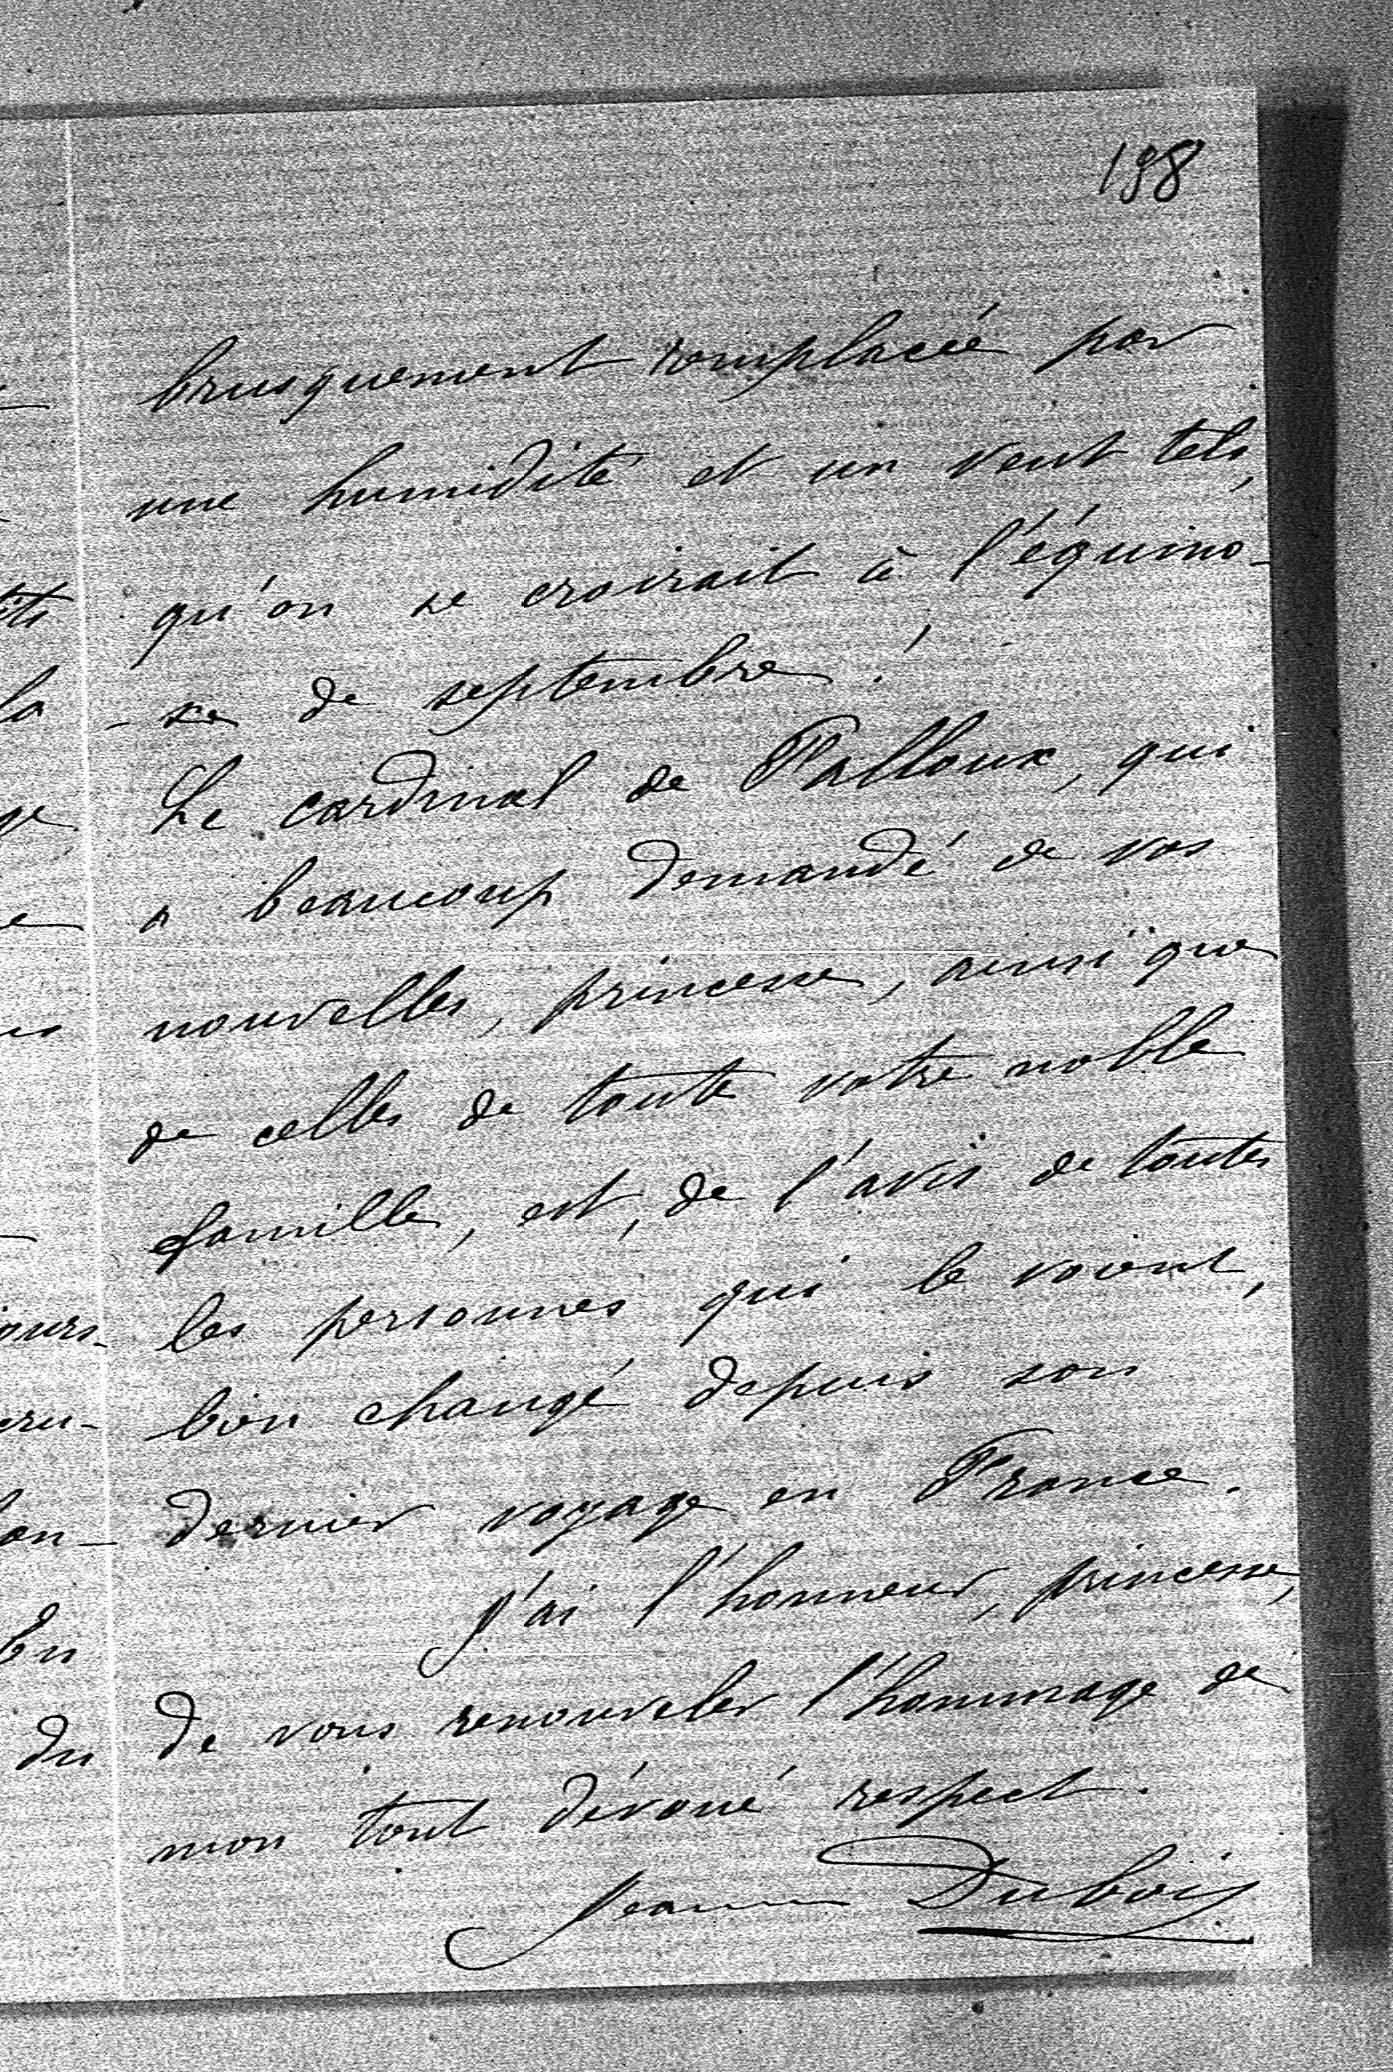 198
brusquement remplacée par
une humidité et un vent tels,
qu'on se croirait à l'équino-
-xe de septembre !
Le cardinal de Falloux, qui
a beaucoup demandé de vos
nouvelles, princesse, ainsi que
de celles de toute votre noble
famille, est, de l'avis de toutes
les personnes qui le voient,
bien changé depuis son
dernier voyage en France.
J'ai l'honneur, princesse,
de vous renouveler l'hommage de
mon tout dévoué respect.
Jeanne Dubois